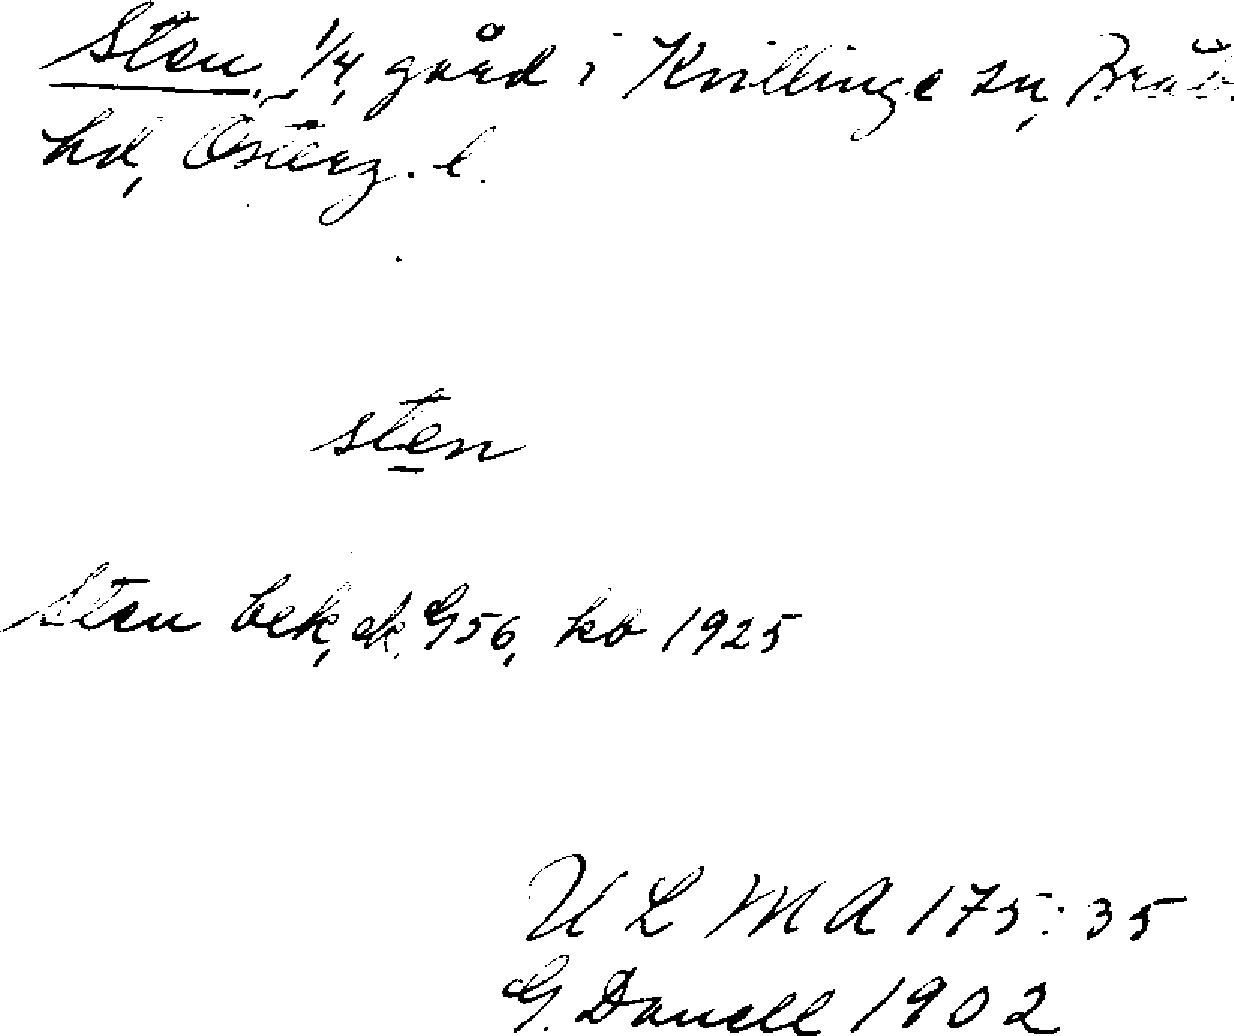 Sten, 1/4 gård i Kvillinge sn, Bråb.
hd, Österg. l.
sten
Sten bek, ek. G 56, kb 1925
ULMA 175:35
G. Danell 1902